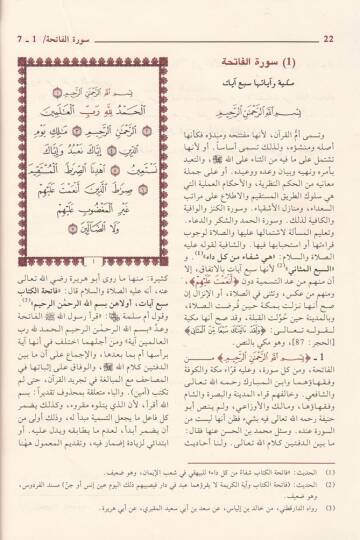 22
سورة الفاتحة/ 1 ـ 7
(1) سورة الفاتحة
مكية وآياتها سبع آيات
بِسْمِ اللَّهِ الرَّحْمَنِ الرَّحِيمِ
وتسمى أم القرآن، لأنها مفتتحه ومبدؤه فكأنها
أصله ومنشؤه، ولذلك تسمى أساساً. أو لأنها
تشتمل على ما فيه من الثناء على الله ﷻ، والتعبد
بأمره ونهيه وبيان وعده ووعيده. أو على جملة
معانيه من الحكم النظرية، والأحكام العملية التي
هي سلوك الطريق المستقيم والاطلاع على مراتب
السعداء ومنازل الأشقياء. وسورة الكنز والوافية
والكافية لذلك. وسورة الحمد والشكر والدعاء.
وتعليم المسألة لاشتمالها عليها والصلاة لوجوب
قراءتها أو استحبابها فيها. والشافية لقوله عليه
الصلاة والسلام: «هي شفاء من كل داء»(1). و
«السبع المثاني»(2) لأنها سبع آيات بالاتفاق، إلا
أن منهم من عد التسمية دون ﴿أَنْعَمْتَ عَلَيْهِمْ﴾،
ومنهم من عكس، وتثنى في الصلاة، أو الإنزال إن
صح أنها نزلت بمكة حين فرضت الصلاة،
وبالمدينة حين حُوِّلت القبلة، وقد صح أنها مكية
لقوله تعالى: ﴿وَلَقَدْ آتَيْنَاكَ سَبْعًا مِنَ الْمَثَانِي﴾
[الحجر: 87]، وهو مكي بالنص.
1 ـ ﴿بِسْمِ اللَّهِ الرَّحْمَنِ الرَّحِيمِ﴾ من
الفاتحة، ومن كل سورة، وعليه قرّاء مكة والكوفة
وفقهاؤهما وابن المبارك رحمه الله تعالى
والشافعي. وخالفهم قراء المدينة والبصرة والشام
وفقهاؤها ومالك والأوزاعي، ولم ينص أبو
حنيفة رحمه الله تعالى فيه بشيء فظن أنها ليست من
السورة عنده. وسئل محمد بن الحسن عنها فقال:
ما بين الدفتين كلام الله تعالى. ولنا أحاديث
بِسْمِ اللَّهِ الرَّحْمَنِ الرَّحِيمِ
الْحَمْدُ لِلَّهِ رَبِّ الْعَالَمِينَ
الرَّحْمَنِ الرَّحِيمِ مَالِكِ يَوْمِ
الدِّينِ إِيَّاكَ نَعْبُدُ وَإِيَّاكَ
نَسْتَعِينُ اهْدِنَا الصِّرَاطَ الْمُسْتَقِيمَ
صِرَاطَ الَّذِينَ أَنْعَمْتَ عَلَيْهِمْ
غَيْرِ الْمَغْضُوبِ عَلَيْهِمْ
وَلَا الضَّالِّينَ
١
كثيرة: منها ما روى أبو هريرة رضي الله تعالى
عنه، أنه عليه الصلاة والسلام قال: «فاتحة الكتاب
سبع آيات، أولاهن بسم الله الرحمن الرحيم»(3)
وقول أم سلمة: «قرأ رسول الله ﷺ الفاتحة
وعدّ «بسم الله الرحمن الرحيم الحمد لله رب
العالمين آية» ومن أجلهما اختلف في أنها آية
برأسها أم بما بعدها، والإجماع على أن ما بين
الدفتين كلام الله ﷻ، والوفاق على إثباتها في
المصاحف مع المبالغة في تجريد القرآن، حتى لم
تكتب (آمين). والباء متعلقة بمحذوف تقديره: بسم
الله أقرأ، لأن الذي يتلوه مقروء، وكذلك يضمر
كل فاعل ما يجعل التسمية مبدأ له، وذلك أولى من
أن يضمر أبدأ، لعدم ما يطابقه ويدل عليه. أو
ابتدائي لزيادة إضمار فيه، وتقديم المعمول هٰهنا
(1) الحديث: «فاتحة الكتاب شفاءٌ من كل داء» للبيهقي في شعب الإيمان، وهو ضعيف.
(2) الحديث: «فاتحة الكتاب وآية الكرسي لا يقرؤهما عبد في دار فيصيبهم ذلك اليوم عين إنس أو جنّ» مسند الفردوس،
وهو ضعيف.
(3) رواه الدارقطني، من خالد بن إلياس، عن سعد بن أبي سعيد المقبري، عن أبي هريرة.